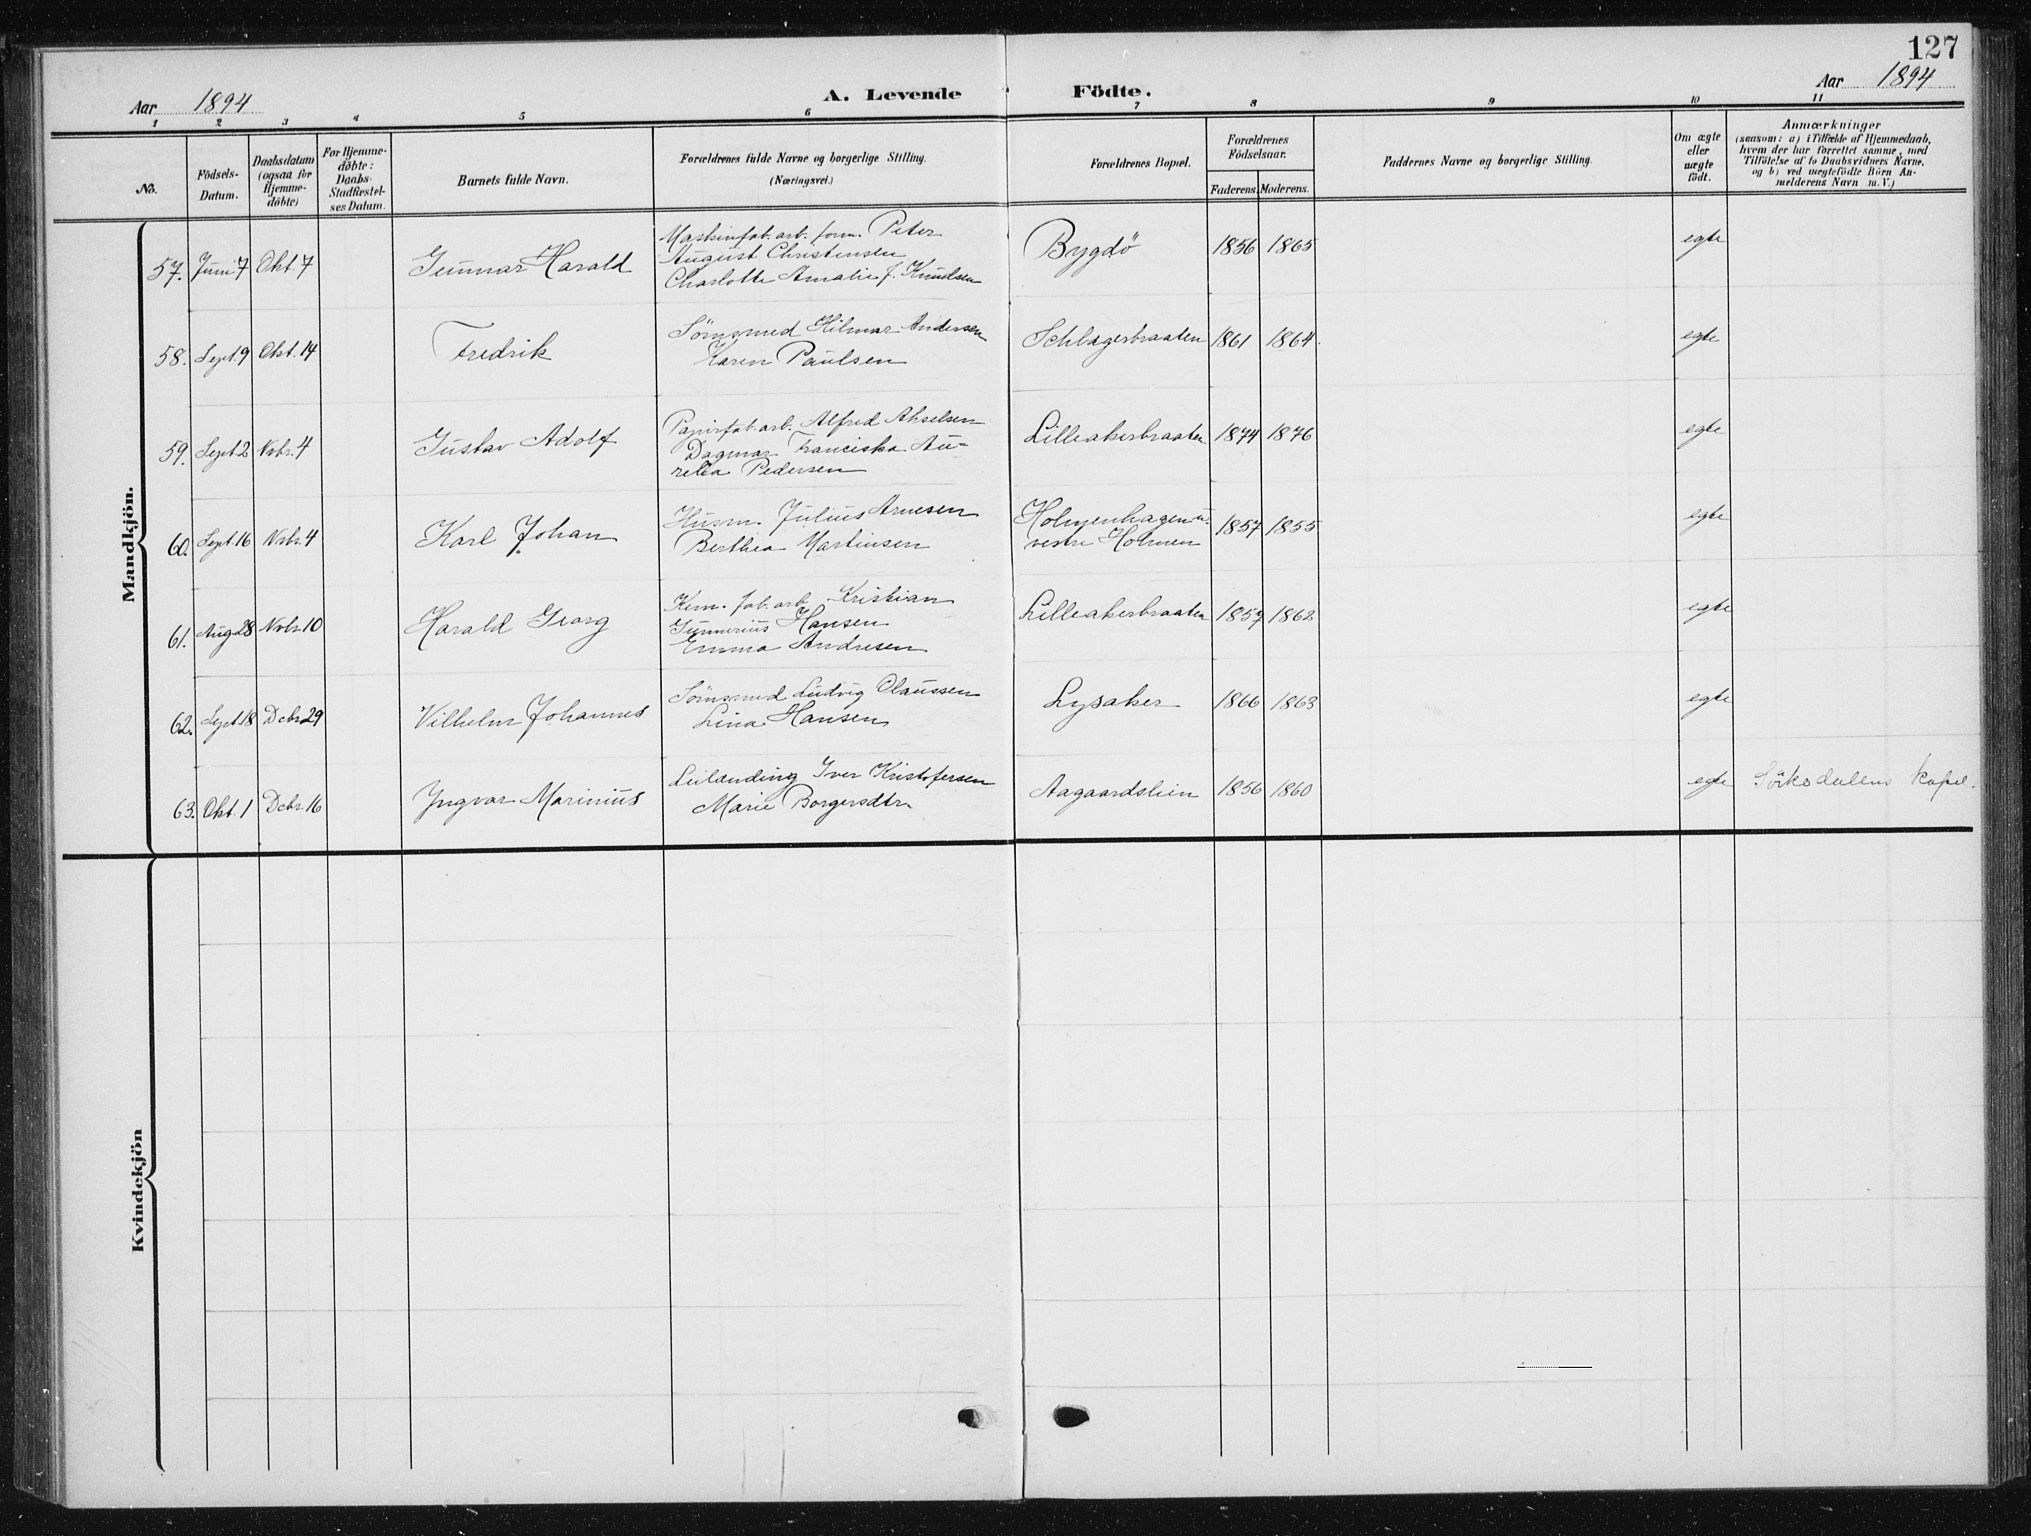 127
Aar 1894
A. Levende Födte.
Aar 1894
1 2 3 4 5 6 7 8 9 10 11
No.
Födsels-
Datum.
Daabsdatum
(ogsaa for
Hjemme-
döbte)
For Hjemme-
döbte:
Daabs-
Stadfæstel-
ses Datum.
Barnets fulde Navn.
Forældrenes fulde Navne og borgerlige Stilling.
(Næringsvei.)
Forældrenes Bopæl.
Forældrenes
Födselsaar.
Faderens. Moderens.
Faddernes Navne og borgerlige Stilling.
Om ægte
eller
uægte
födt.
Anmærkninger
(saasom: a) i Tilfælde af Hjemmedaab,
hvem der har forrettet samme, med
Tilföielse af to Daabsvidners Navne.
og b) ved uægtefödte Börn An-
melderens Navn m. V.)
Mandkjön.
57. Juni 7 Okt. 7 Gunnar Harald
Maskinfab. arb. form. Peter
August Christensen
Charlotte Amalie f. Knudsen
Bygdö 1856 1865 egte
58. Sept. 9 Okt. 14 Fredrik
Sömsmed Hilmar Andersen
Karen Paulsen
Schlagerbraaten 1861 1864 egte
59. Sept 2 Nvbr. 4 Gustav Adolf
Papirfab. arb. Alfred Akselsen
Dagmar Franciska Au-
relia Pedersen
Lilleakerbraaten 1874 1876 egte
60. Sept. 16 Nvbr. 4 Karl Johan
Husm. Julius Arnesen
Berthea Martinsen
Holmenhagen u.
vestre Holmen
1857 1855 egte
61. Aug 28 Nvbr. 10 Harald Georg
Kem. fab. arb. Kristian
Gunnerius Hansen
Emma Andresen
Lilleakerbraaten 1857 1862 egte
62. Sept. 18 Debr 29 Vilhelm Johannes
Sömsmed Ludvig Claussen
Lina Hansen
Lysaker 1866 1863 egte
63. Okt. 1 Debr. 16 Yngvar Marinius
Leilænding Iver Kristofersen
Marie Borgersdtr.
Aagaardslein 1856 1860 egte Sörkedalens kapel.
Kvindekjön